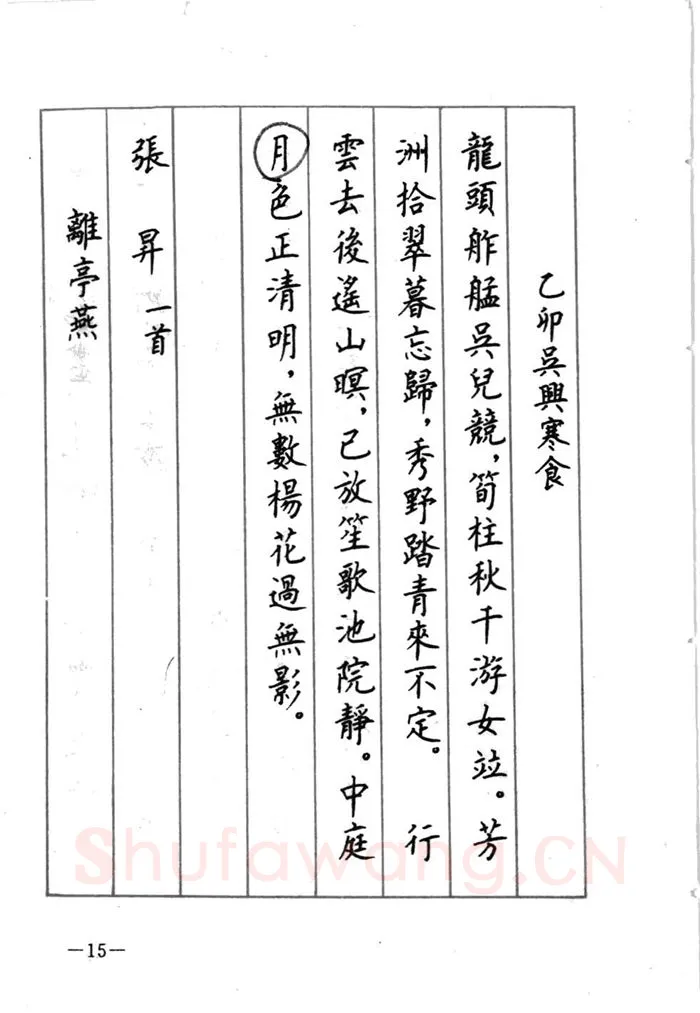 乙卯吳興寒食
龍頭舴艋吳兒競，筍柱秋千游女竝。芳
洲拾翠暮忘歸，秀野踏青來不定。 行
雲去後遙山暝，已放笙歌池院靜。中庭
月色正清明，無數楊花過無影。
張 昇 一首
離亭燕
Shufawang.CN
—15—